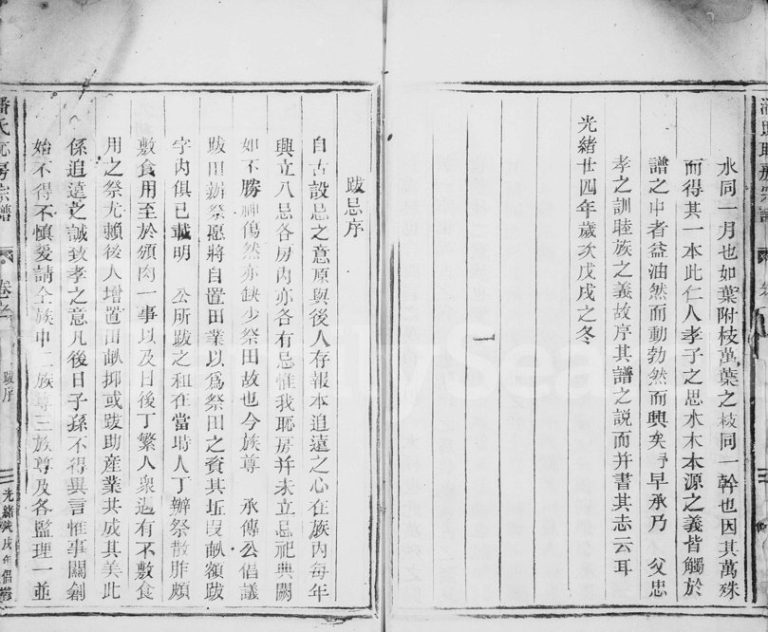 水同一月也如葉附枝萬葉之枝同一幹也因其萬殊
而得其一本此仁人孝子之思水木本源之義皆觸於
譜之中者益油然而動勃然而興矣予早承乃 父忠
孝之訓睦族之義故序其譜之說而并書其志云耳
光緒廿四年歲次戊戌之冬
跋忌序
自古設忌之意原與後人存報本追遠之心在族內每年
興立八忌各房內亦各有忌惟我恥房并未立忌祀典闕
如不勝神傷然亦缺少祭田故也今族尊 承傳公倡議
跋田辦祭愿將自置田業以為祭田之資其坵段畝額跋
字內俱已載明 公所跋之租在當時人丁辦祭散胙頗
敷食用至於頒肉一事以及日後丁繁人衆過有不敷食
用之祭尤賴後人增置田畝抑或跋助産業共成其美此
係追遠之誠致孝之意凡後日子孫不得異言惟事關創
始不得不慎爰請仝族中二族尊三族尊及各監理一並
潘氏 房宗譜 卷之 跋序 光緒戊戌年倡修